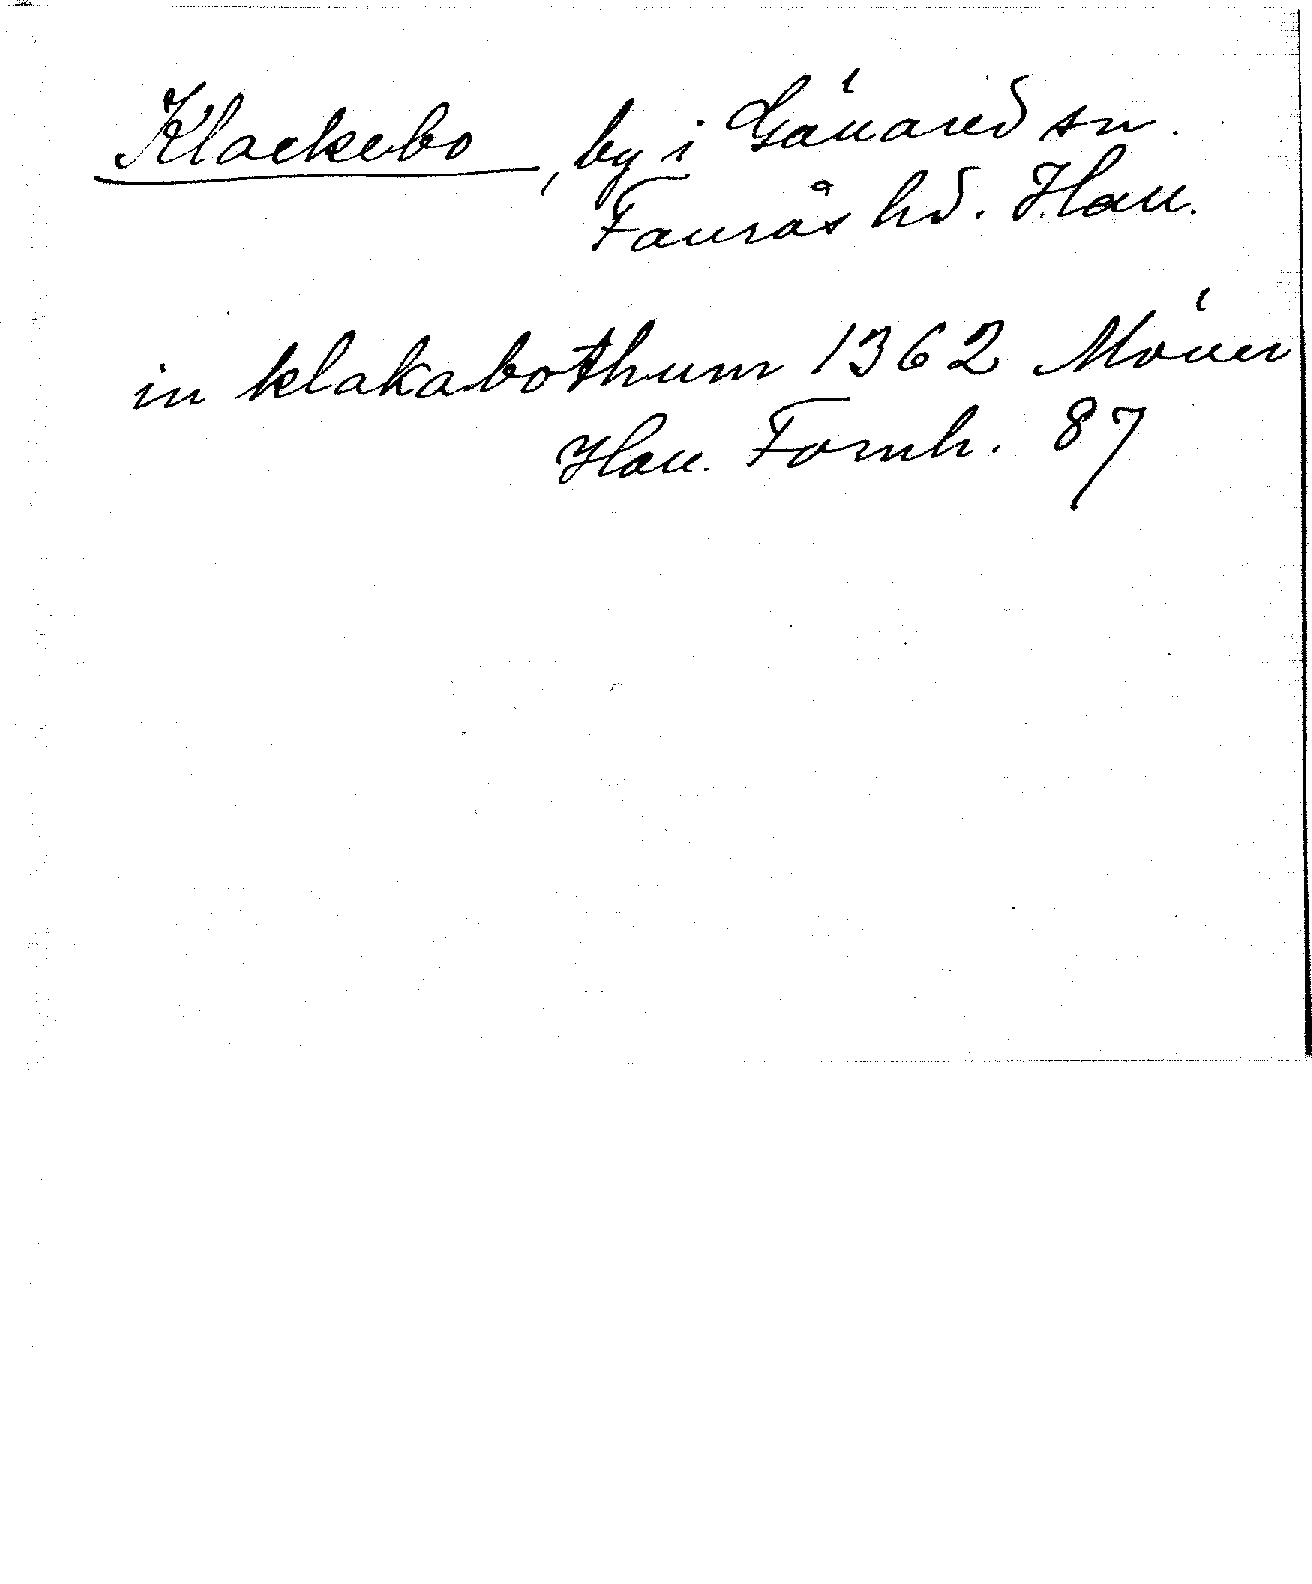 Klackebo, by i Gällared sn.
Faurås hd. Hall.
in klakabothum 1362 Möller
Hall. Fornh. 87